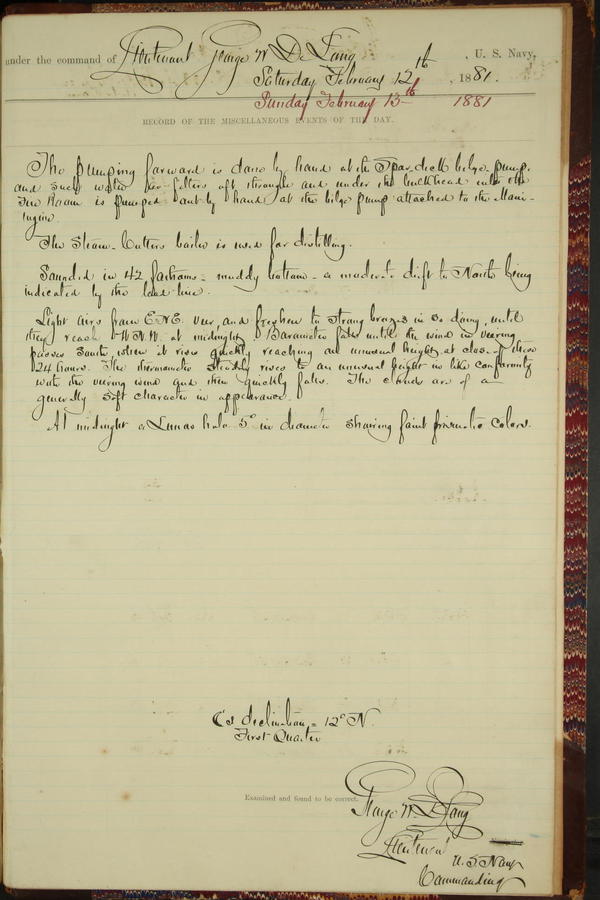 under the command of Lieutenant George W. De Long, U. S. Navy,
Saturday February 12th, 1881.
Sunday February 13th 1881
RECORD OF THE MISCELLANEOUS EVENTS OF THE DAY.
The pumping forward is done by hand at the Spar-deck bilge-pump.
and such water as filters aft through and under the bulkhead into the
Fire Room is pumped out by hand at the bilge pump attached to the Main-
engine.
The Steam-Cutters boiler is used for distilling.
Sounded in 42 fathoms - muddy bottom - a moderate drift to North being
indicated by the lead-line.
Light airs from ENE. veer, and freshen to strong breezes in so doing, until
they reach W.N.W. at midnight. Barometer falls until the wind in veering
passes South, when it rises quickly reaching an unusual height at close of these
24 hours. The thermometer steadily rises to an unusual height in like conformity
with the veering wind and then quickly falls. The clouds are of a
generally soft character in appearance.
At midnight a Lunar halo 5° in diameter showing faint prismatic colors.
☾'s declination = 12° N.
First Quarter
Examined and found to be correct.
George W. De Long
Lieutenant
U. S. Navy
Commanding